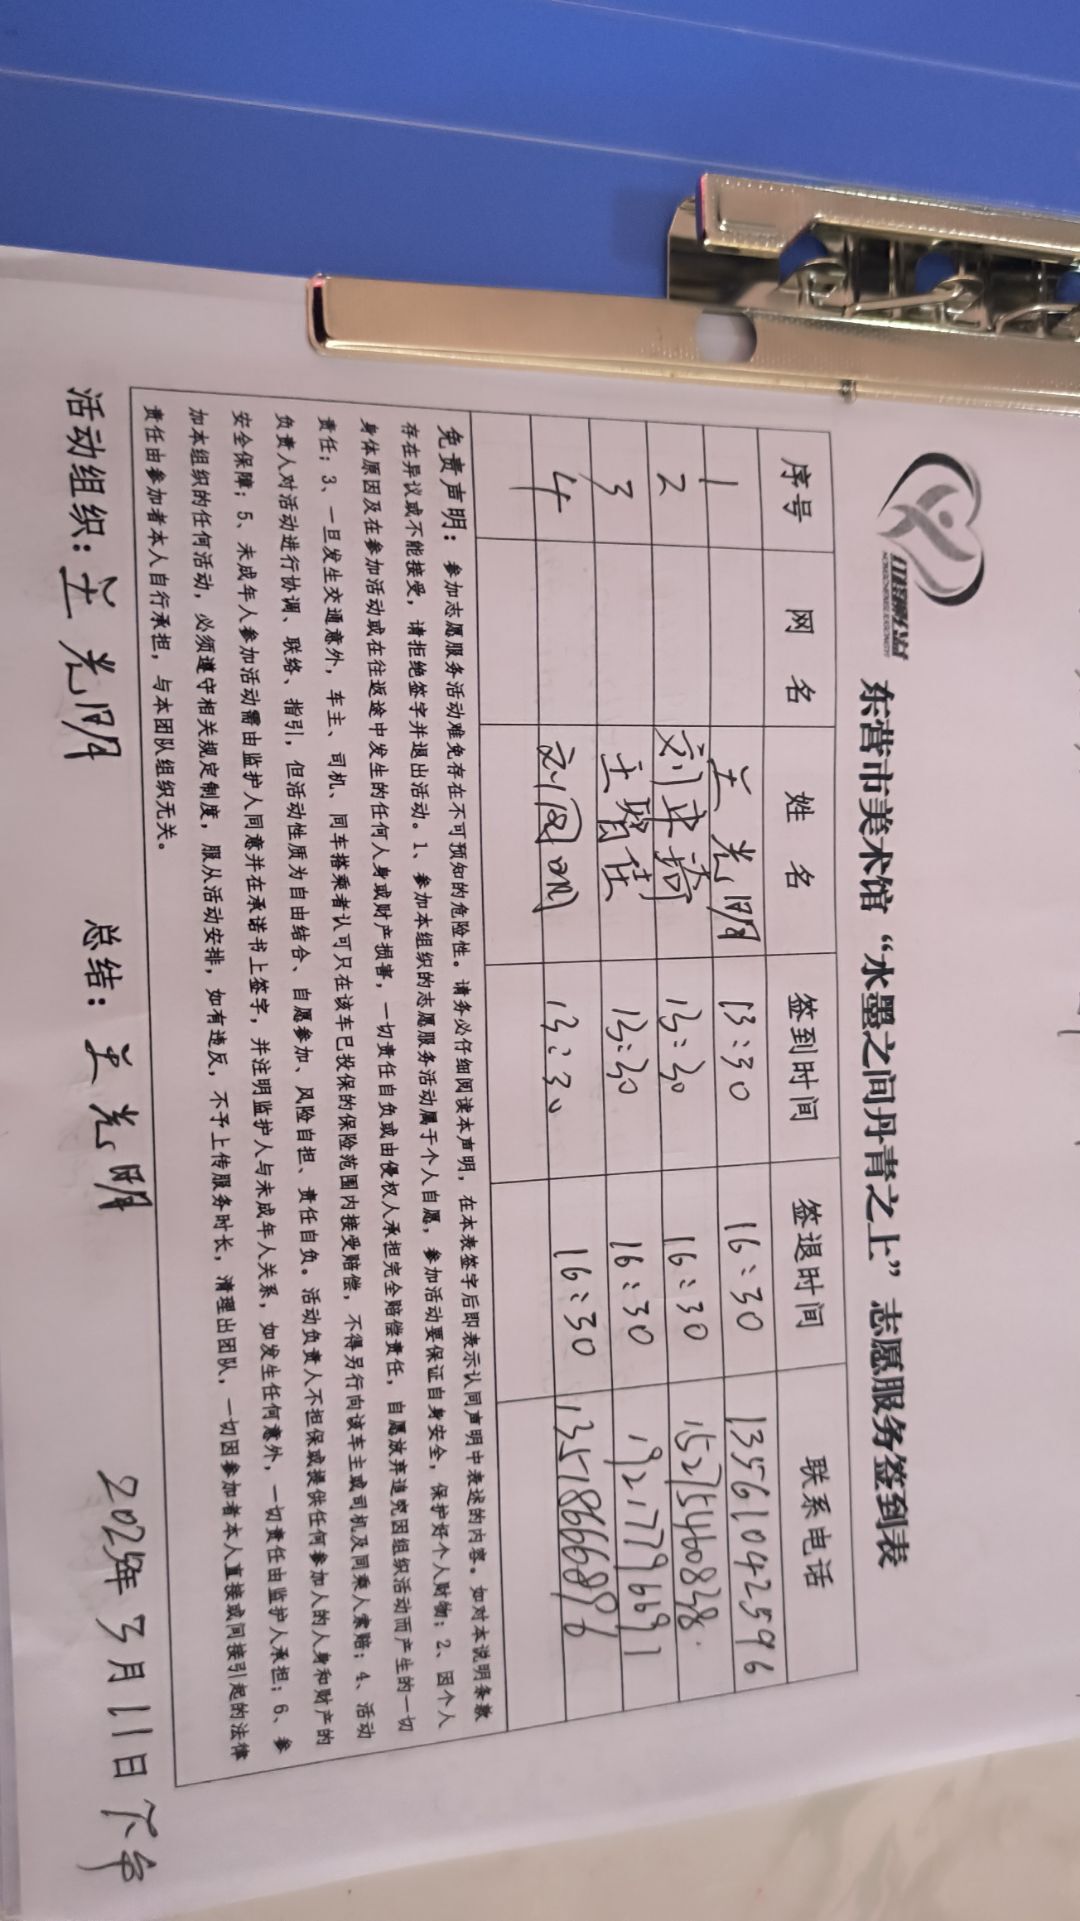 东营市美术馆“水墨之间丹青之上”志愿服务签到表
序号 网 名 姓 名 签到时间 签退时间 联系电话
1 兰光明 13:30 16:30 13561042596
2 13:30 16:30 15275460838
3 王智佳 13:30 16:30 19217796691
4 13:30 16:30 13518666896
免责声明：参加志愿服务活动难免存在不可预知的危险性。请务必仔细阅读本声明，在本表签字后即表示认同声明中表述的内容。如对本说明条款
存在异议或不能接受，请拒绝签字并退出活动。1、参加本组织的志愿服务活动属于个人自愿，参加活动要保证自身安全，保护好个人财物；2、因个人
身体原因及在参加活动或在往返途中发生的任何人身或财产损害，一切责任自负或由侵权人承担完全赔偿责任，自愿放弃追究因组织活动而产生的一切
责任；3、一旦发生交通意外，车主、司机、同车搭乘者认可只在该车已投保的保险范围内接受赔偿，不得另行向该车主或司机及同乘人索赔；4、活动
负责人对活动进行协调、联络、指引，但活动性质为自由结合、自愿参加、风险自担、责任自负。活动负责人不担保或提供任何参加人的人身和财产的
安全保障；5、未成年人参加活动需由监护人同意并在承诺书上签字，并注明监护人与未成年人关系，如发生任何意外，一切责任由监护人承担；6、参
加本组织的任何活动，必须遵守相关规定制度，服从活动安排，如有违反，不予上传服务时长，清理出团队，一切因参加者本人直接或间接引起的法律
责任由参加者本人自行承担，与本团队组织无关。
活动组织：兰光明 总结：兰光明 2025年3月11日下午